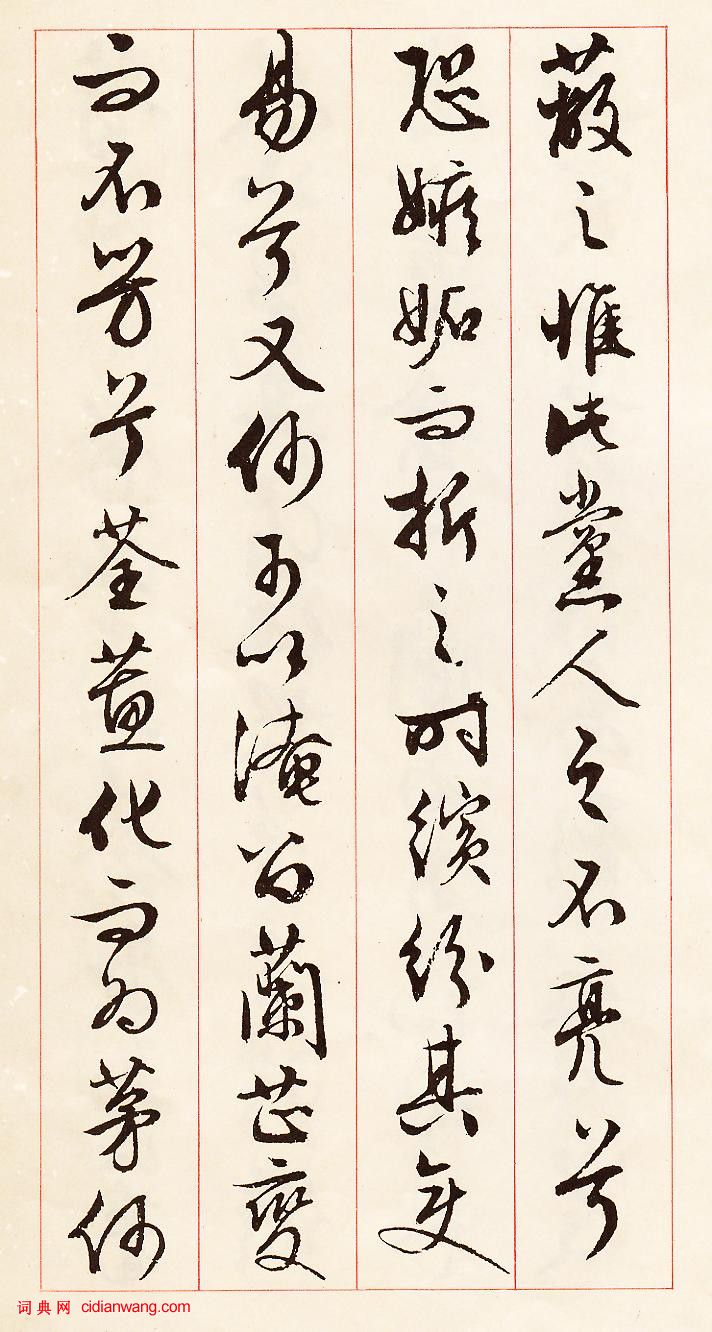 蔽之惟此黨人之不亮兮
恐嫉妬而折之時繽紛其變
易兮又何可以淹留蘭芷變
而不芳兮荃蕙化而為茅何
词典网 cidianwang.com